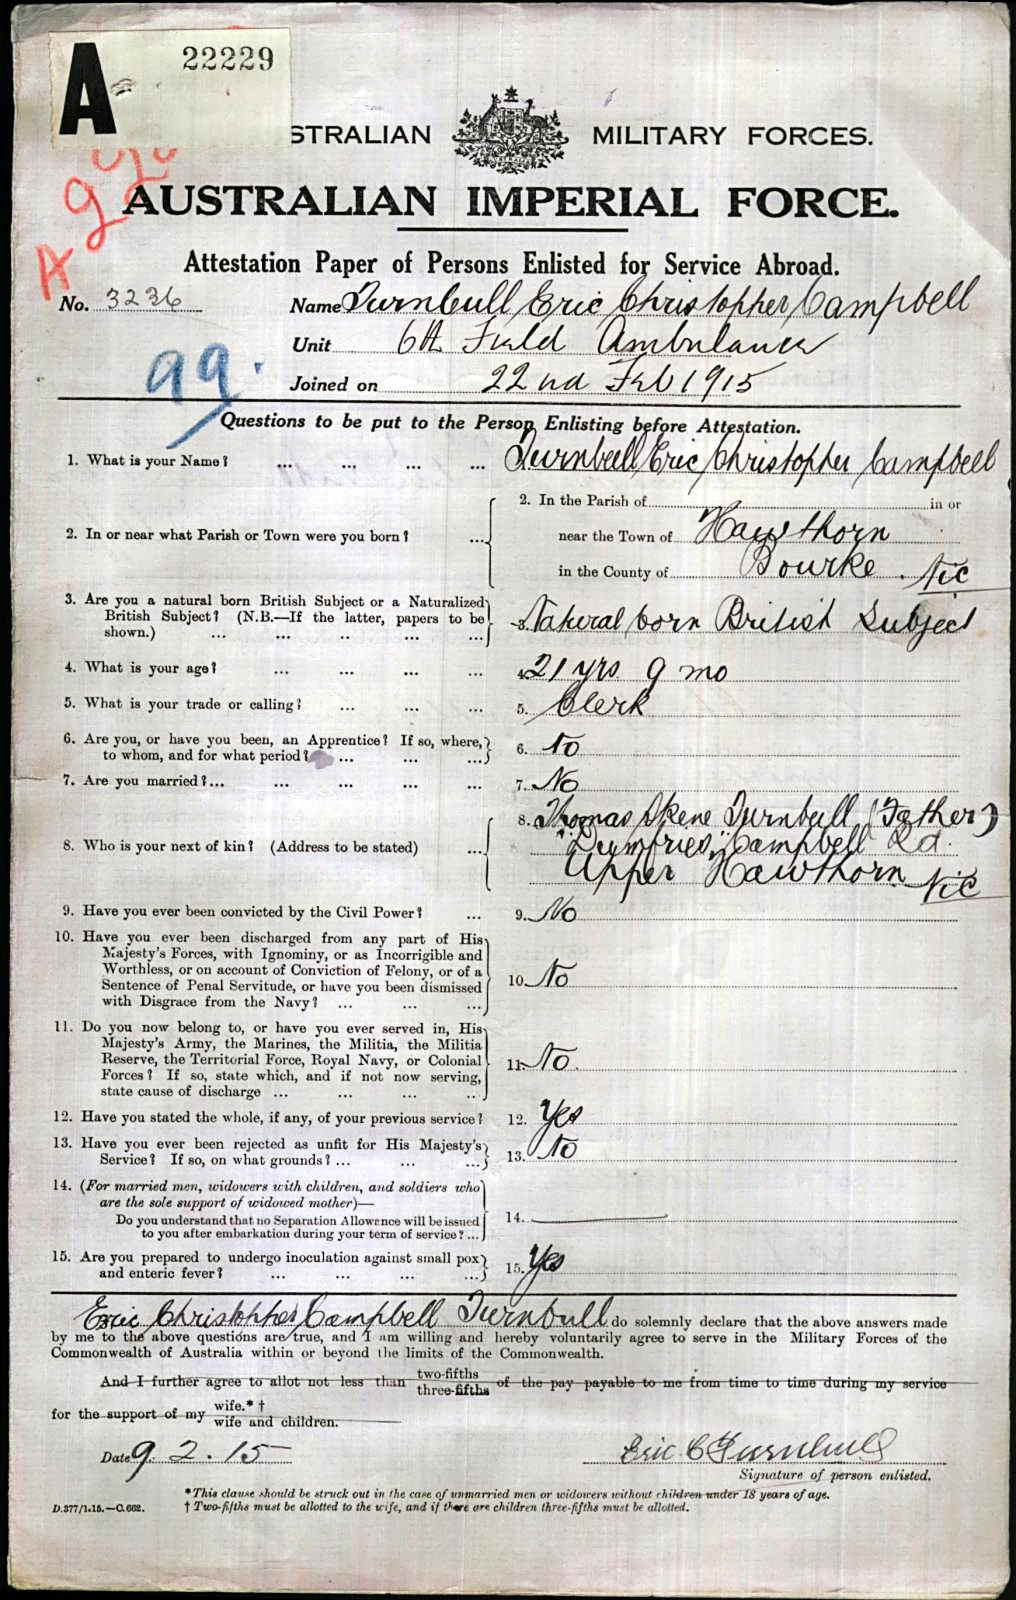 A 22229
STRALIAN MILITARY FORCES.
AUSTRALIAN IMPERIAL FORCE.
A
Attestation Paper of Persons Enlisted for Service Abroad.
No. 3236 Name Turnbull Eric Christopher Campbell
Unit 6th Field Ambulance
99.
Joined on 22nd Feb 1915
Questions to be put to the Person Enlisting before Attestation.
1. What is your Name? ... ... ... ... Turnbull Eric Christopher Campbell
2. In or near what Parish or Town were you born? ...
2. In the Parish of in or
near the Town of Hawthorn
in the County of Bourke. Vic
3. Are you a natural born British Subject or a Naturalized
British Subject? (N.B.—If the latter, papers to be
shown.) ... ... .. ... ...
3. Natural born British Subject
4. What is your age? ... ... ... ... 4. 21 yrs 9 mo
5. What is your trade or calling? ... ... ... 5. Clerk
6. Are you, or have you been, an Apprentice? If so, where,
to whom, and for what period? ... ... ...
6. No
7. Are you married?... ... ... ... ... 7. No
8. Who is your next of kin? (Address to be stated) ...
8. Thomas Skene Turnbull (Father)
"Dumfries" Campbell Rd
Upper Hawthorn Vic
9. Have you ever been convicted by the Civil Power? ... 9. No
10. Have you ever been discharged from any part of His
Majesty's Forces, with Ignominy, or as Incorrigible and
Worthless, or on account of Conviction of Felony, or of a
Sentence of Penal Servitude, or have you been dismissed
with Disgrace from the Navy? ... ... ...
10. No
11. Do you now belong to, or have you ever served in, His
Majesty's Army, the Marines, the Militia, the Militia
Reserve, the Territorial Force, Royal Navy, or Colonial
Forces? If so, state which, and if not now serving,
state cause of discharge ... ... ... ..
11. No.
12. Have you stated the whole, if any, of your previous service? 12. Yes
13. Have you ever been rejected as unfit for His Majesty's
Service? If so, on what grounds? ... ... ...
13. No
14. (For married men, widowers with children, and soldiers who
are the sole support of widowed mother)—
Do you understand that no Separation Allowence will be issued
to you after embarkation during your term of service? ...
14.
15. Are you prepared to undergo inoculation against small pox
and enteric fever? ... ... ... ...
15. Yes
Eric Christopher Campbell Turnbull do solemnly declare that the above answers made
by me to the above questions are true, and I am willing and hereby voluntarily agree to serve in the Military Forces of the
Commonwealth of Australia within or beyond the limits of the Commonwealth.
And I further agree to allot not less than two-fifths three-fifths of the pay payable to me from time to time during my service
for the support of my wife.* † wife and children.
Date 9. 2. 15 Eric C Turnbull
Signature of person enlisted.
*This clause should be struck out in the case of unmarried men or widowers without children under 18 years of age.
D.377/1.15.—C.662. † Two-fifths must be allotted to the wife, and if there are children three-fifths must be allotted.